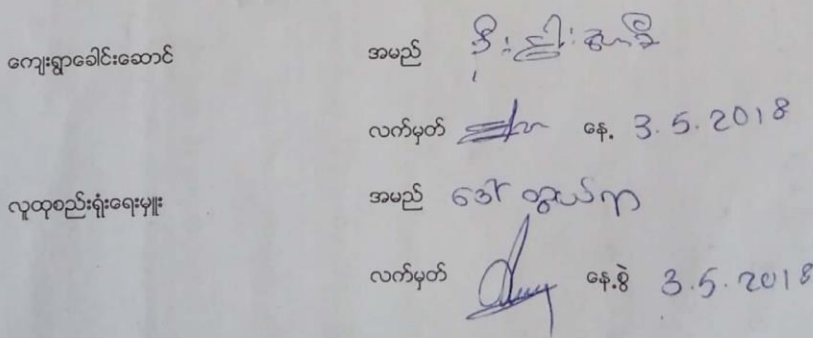 ကျေးရွာခေါင်းဆောင် အမည်
လက်မှတ် နေ့ 3.5.2018
လူထုစည်းရုံးရေးမှူး အမည် ဒေါ်
လက်မှတ် နေ့စွဲ 3.5.2018